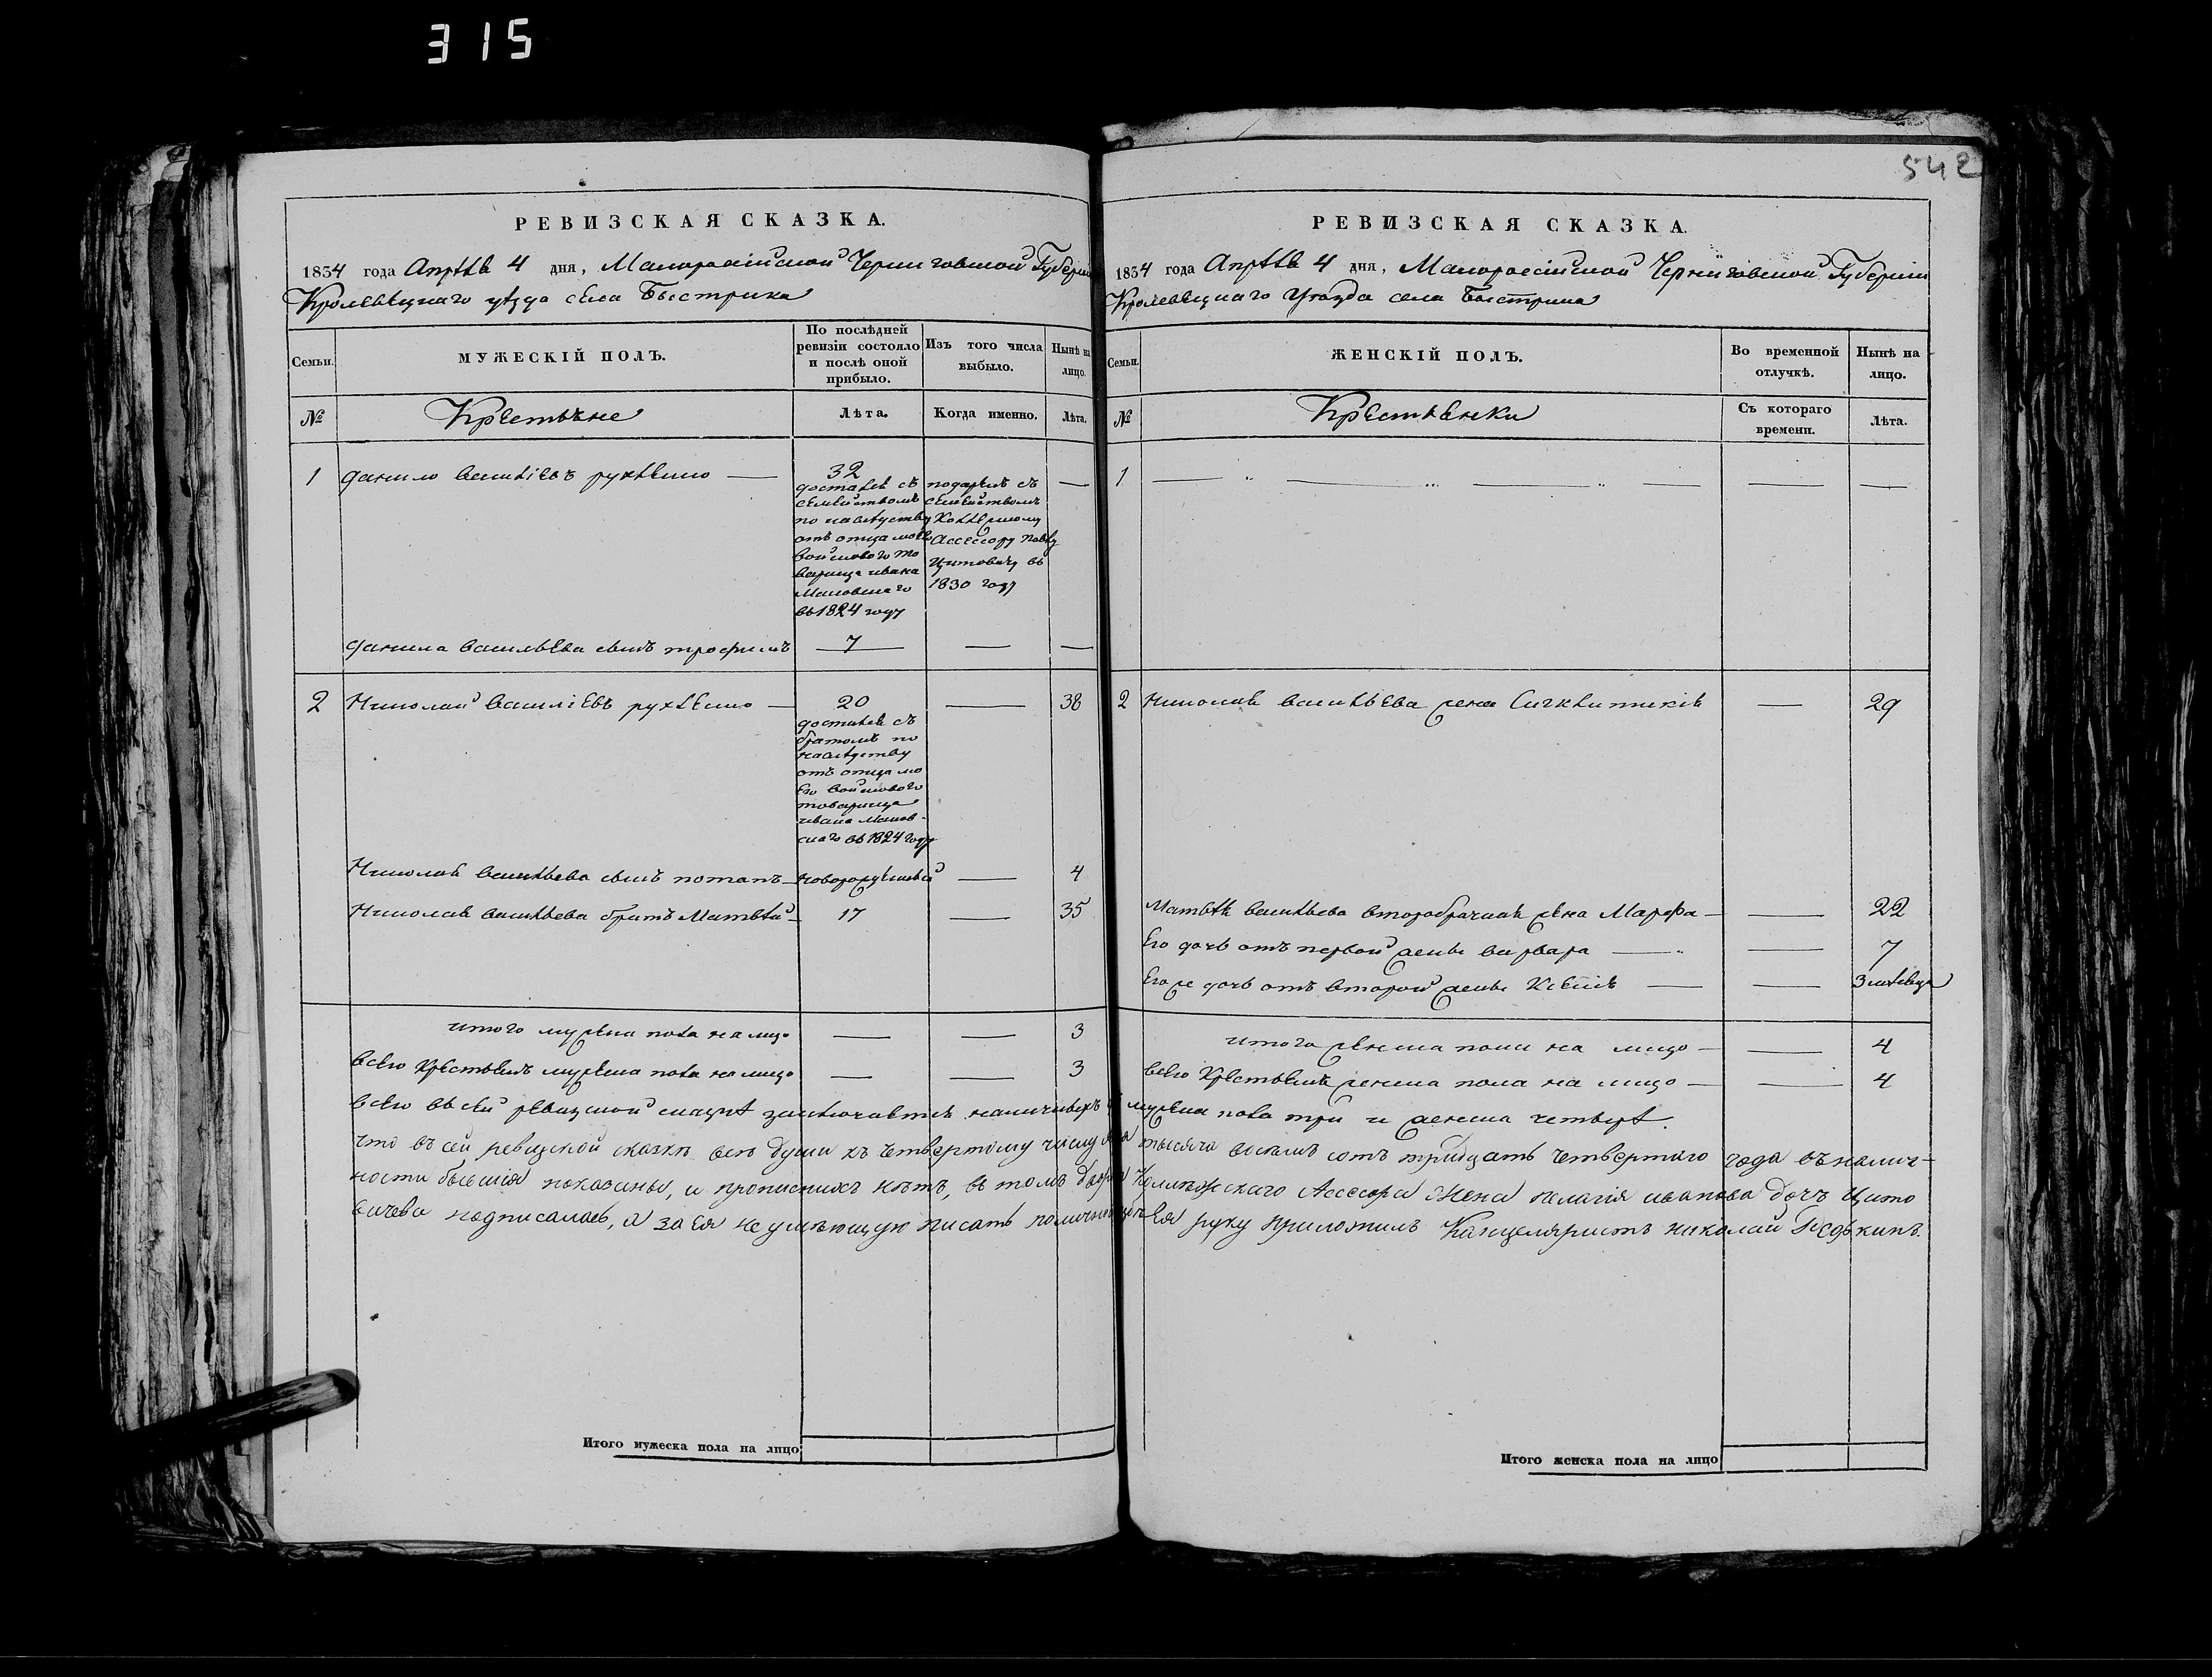 315
542
РЕВИЗСКАЯ СКАЗКА.
1834 года Апрѣля 4 дня, Малоросійской Черниговской Губерніи
Кролевецкаго уѣзда села Быстрика
Семьи.
МУЖЕСКІЙ ПОЛЪ.
По послѣдней ревизіи состояло и послѣ оной прибыло.
Изъ того числа выбыло.
Нынѣ на лицо.
№
Крестьяне
Лѣта.
Когда именно.
Лѣта.
1 данило василіевъ 32
достался съ
семействомъ
по наслѣдству
отъ отца моего
войскового то
варища ивана
Маковскаго
въ 1824 году
подаренъ съ
семействомъ
Колежскому
Асессору
Цитовичу въ
1830 году
данила васильева сынъ трофимъ 7
2 Николай василіевъ 20 38
достался съ
братомъ по
наслѣдству
отъ отца мо
его войскового
товарища
ивана Маков-
скаго въ 1824 году
Николая васильева сынъ потапъ новорожденный 4
Николая васильева братъ Матвѣй 17 35
итого мужеска пола на лицо 3
всего крестьянъ мужеска пола на лицо 3
Итого мужеска пола на лицо
РЕВИЗСКАЯ СКАЗКА.
1834 года Апрѣля 4 дня, Малоросійской Черниговской Губерніи
Кролевецкаго уѣзда села Быстрика
Семьи.
ЖЕНСКІЙ ПОЛЪ.
Во временной отлучкѣ.
Нынѣ на лицо.
№
Крестьянки
Съ котораго времени.
Лѣта.
1
2 Николая васильева жена 29
Матвѣя васильева второбрачная жена Марфа 22
Его дочь отъ первой жены варвара 7
Его же дочь отъ второй жены Ксенія 3 месяца
итого женска пола на лицо 4
всего крестьянъ женска пола на лицо 4
всего въ сей ревизской сказкѣ заключается наличныхъ мужеска пола три и женска четыре.
что въ сей ревизской сказкѣ всѣ души къ четвертому числу тысяча восемь сотъ тридцать четвертого года въ налич-
ности бывшія показаны, и прописныхъ нѣтъ, въ томъ Колежскаго Асессора Жена пелагія иванова дочь Цито
вичева подписалась, а за ея не умѣющую писать ея руку приложилъ Канцеляристъ николай
Итого женска пола на лицо